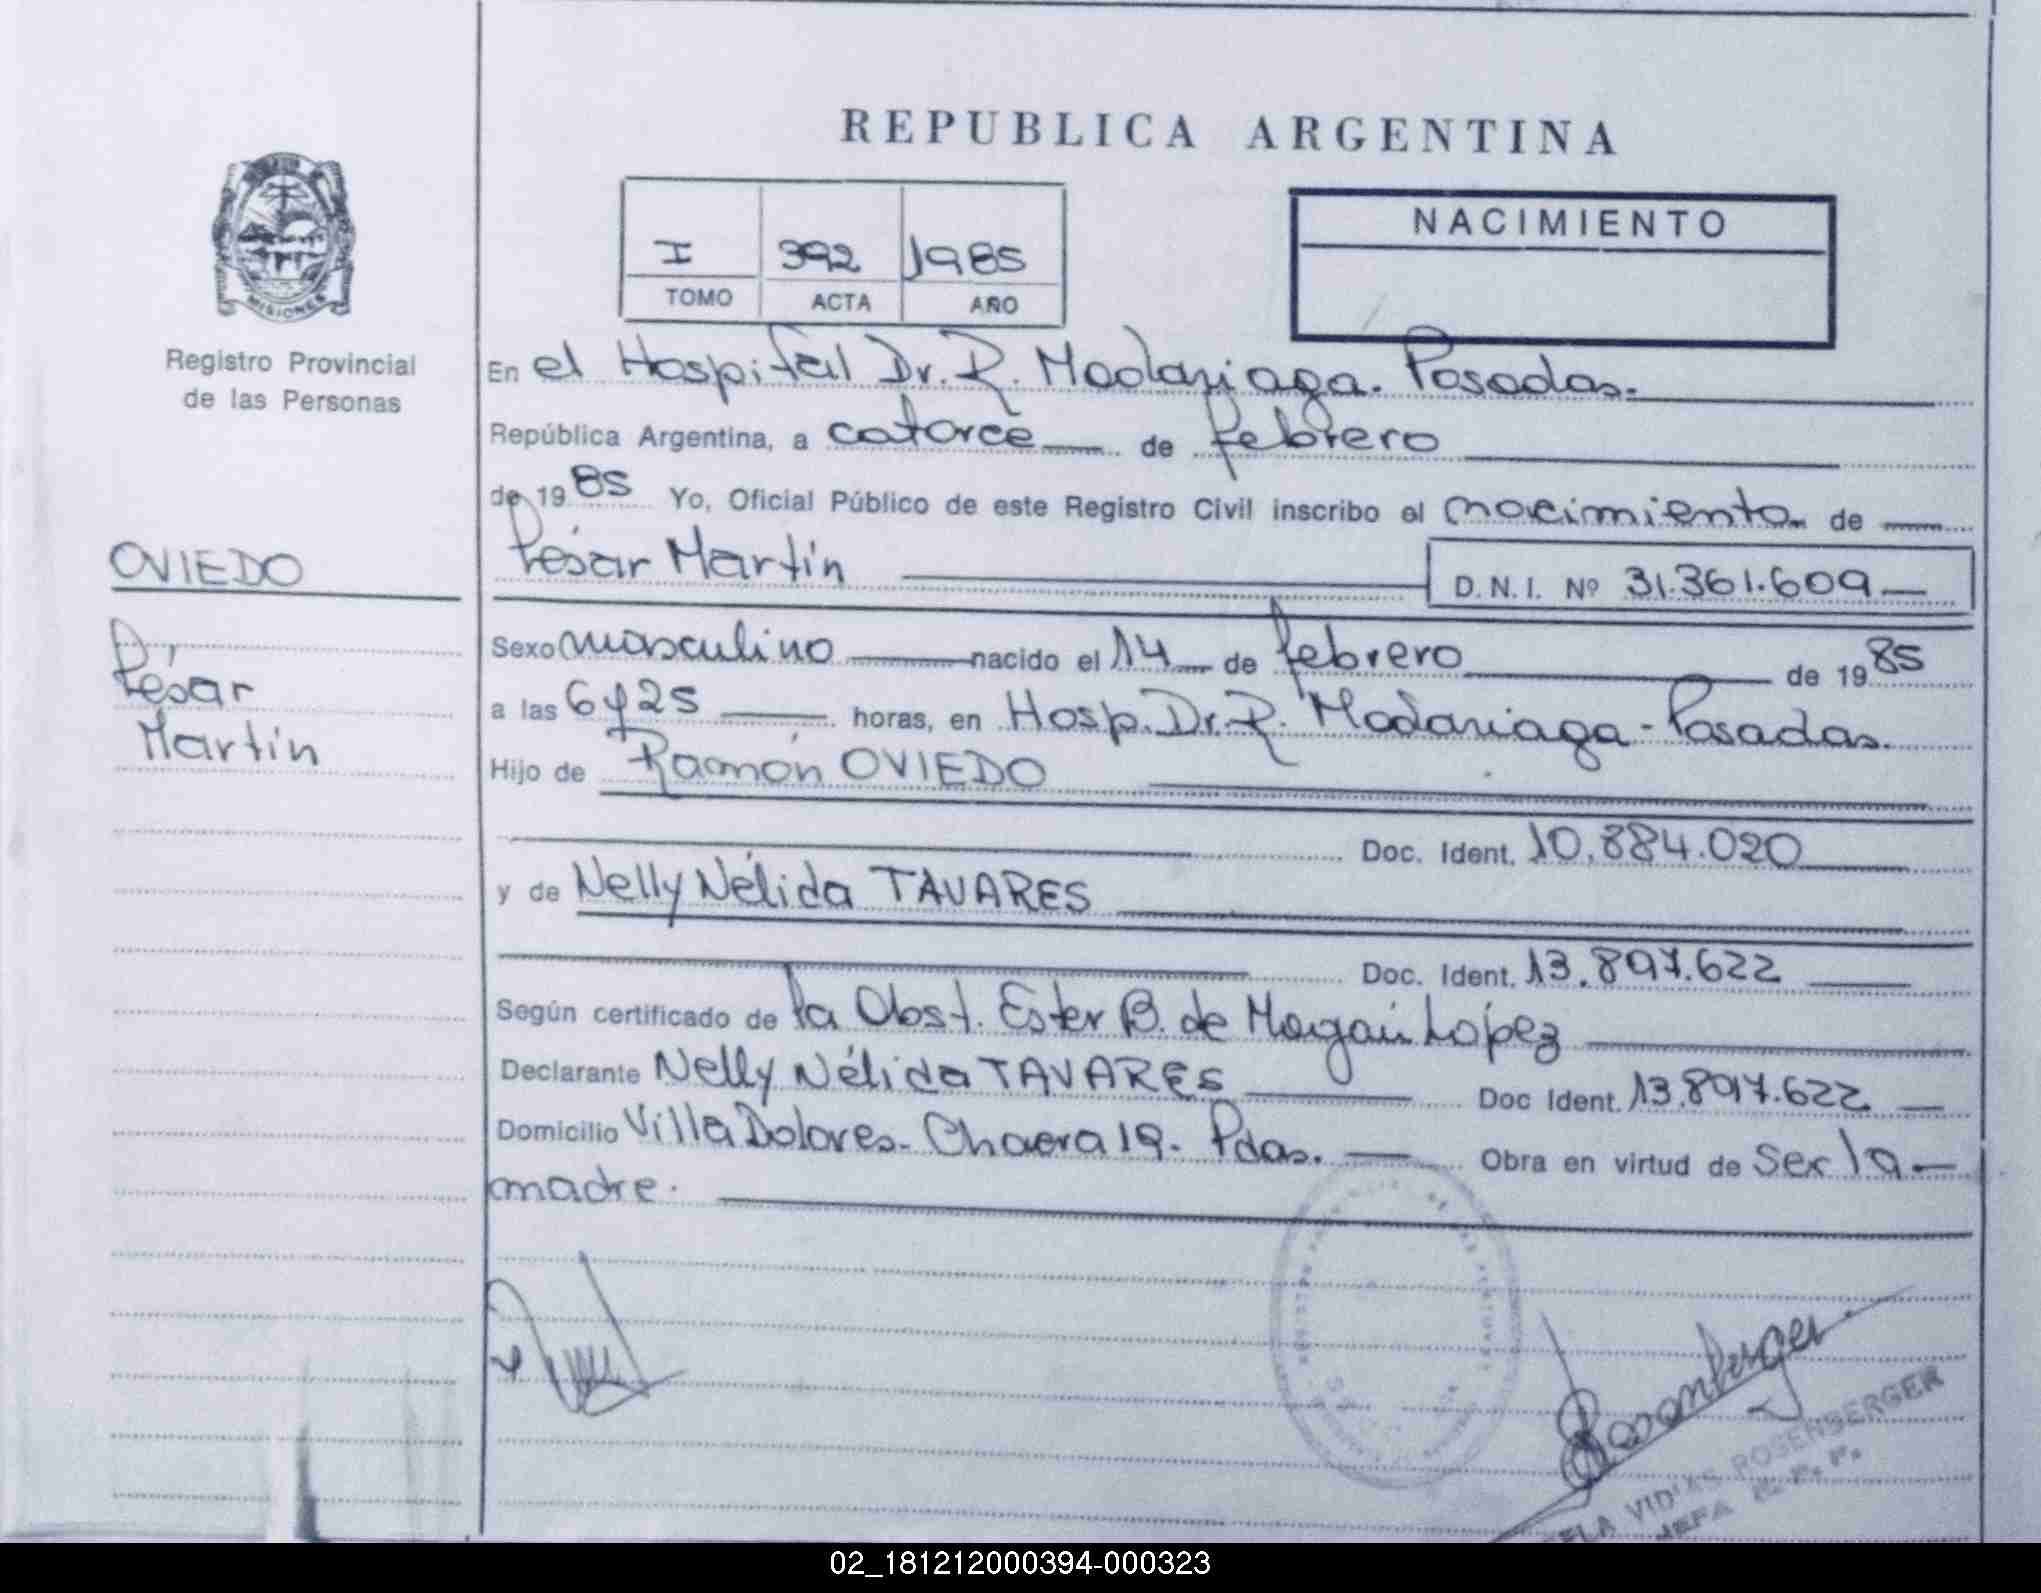 REPUBLICA ARGENTINA
MISIONES
Registro Provincial
de las Personas
I 392 1985
TOMO ACTA AÑO
NACIMIENTO
En el Hospital Dr. R. Madariaga. Posadas.
República Argentina, a catorce de febrero
de 1985 Yo, Oficial Público de este Registro Civil inscribo el nacimiento de
César Martín D.N.I. Nº 31.361.609
OVIEDO
César
Martín
Sexo masculino nacido el 14 de febrero de 1985
a las 6 y 25 horas, en Hosp. Dr. R. Madariaga - Posadas.
Hijo de Ramón OVIEDO
Doc. Ident. 10.884.020
y de Nelly Nélida TAVARES
Doc. Ident. 13.897.622
Según certificado de la Obst. Ester B. de López
Declarante Nelly Nélida TAVARES Doc Ident. 13.897.622
Domicilio Villa Dolores - Chacra 19. Pdas. Obra en virtud de ser la
madre.
Rosenberger
VIDAS ROSENBERGER
JEFA
02_181212000394-000323